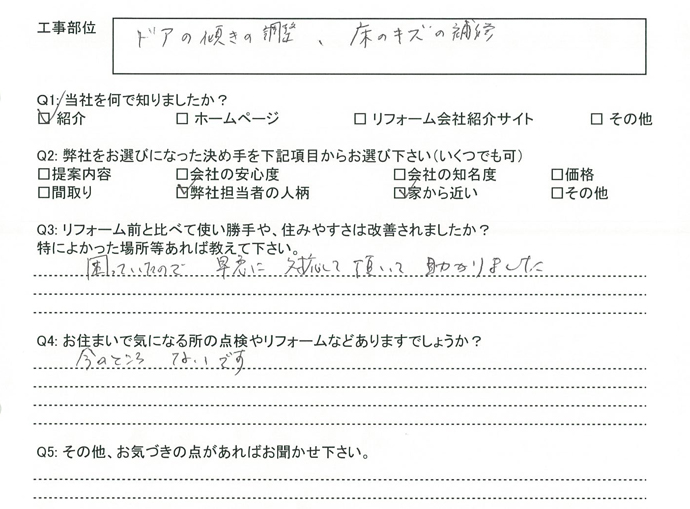 工事部位
ドアの傾きの調整、床のキズの補修
Q1: 当社を何で知りましたか？
☑ 紹介 □ ホームページ □ リフォーム会社紹介サイト □ その他
Q2: 弊社をお選びになった決め手を下記項目からお選び下さい（いくつでも可）
□提案内容 □会社の安心度 □会社の知名度 □価格
□間取り ☑弊社担当者の人柄 ☑家から近い □その他
Q3: リフォーム前と比べて使い勝手や、住みやすさは改善されましたか？
特によかった場所等あれば教えて下さい。
困っていたので 早急に 対応して頂いて 助かりました
Q4: お住まいで気になる所の点検やリフォームなどありますでしょうか？
今のところ ないです
Q5: その他、お気づきの点があればお聞かせ下さい。